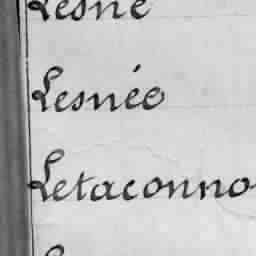 Lesne
Lesnée
Letaconno